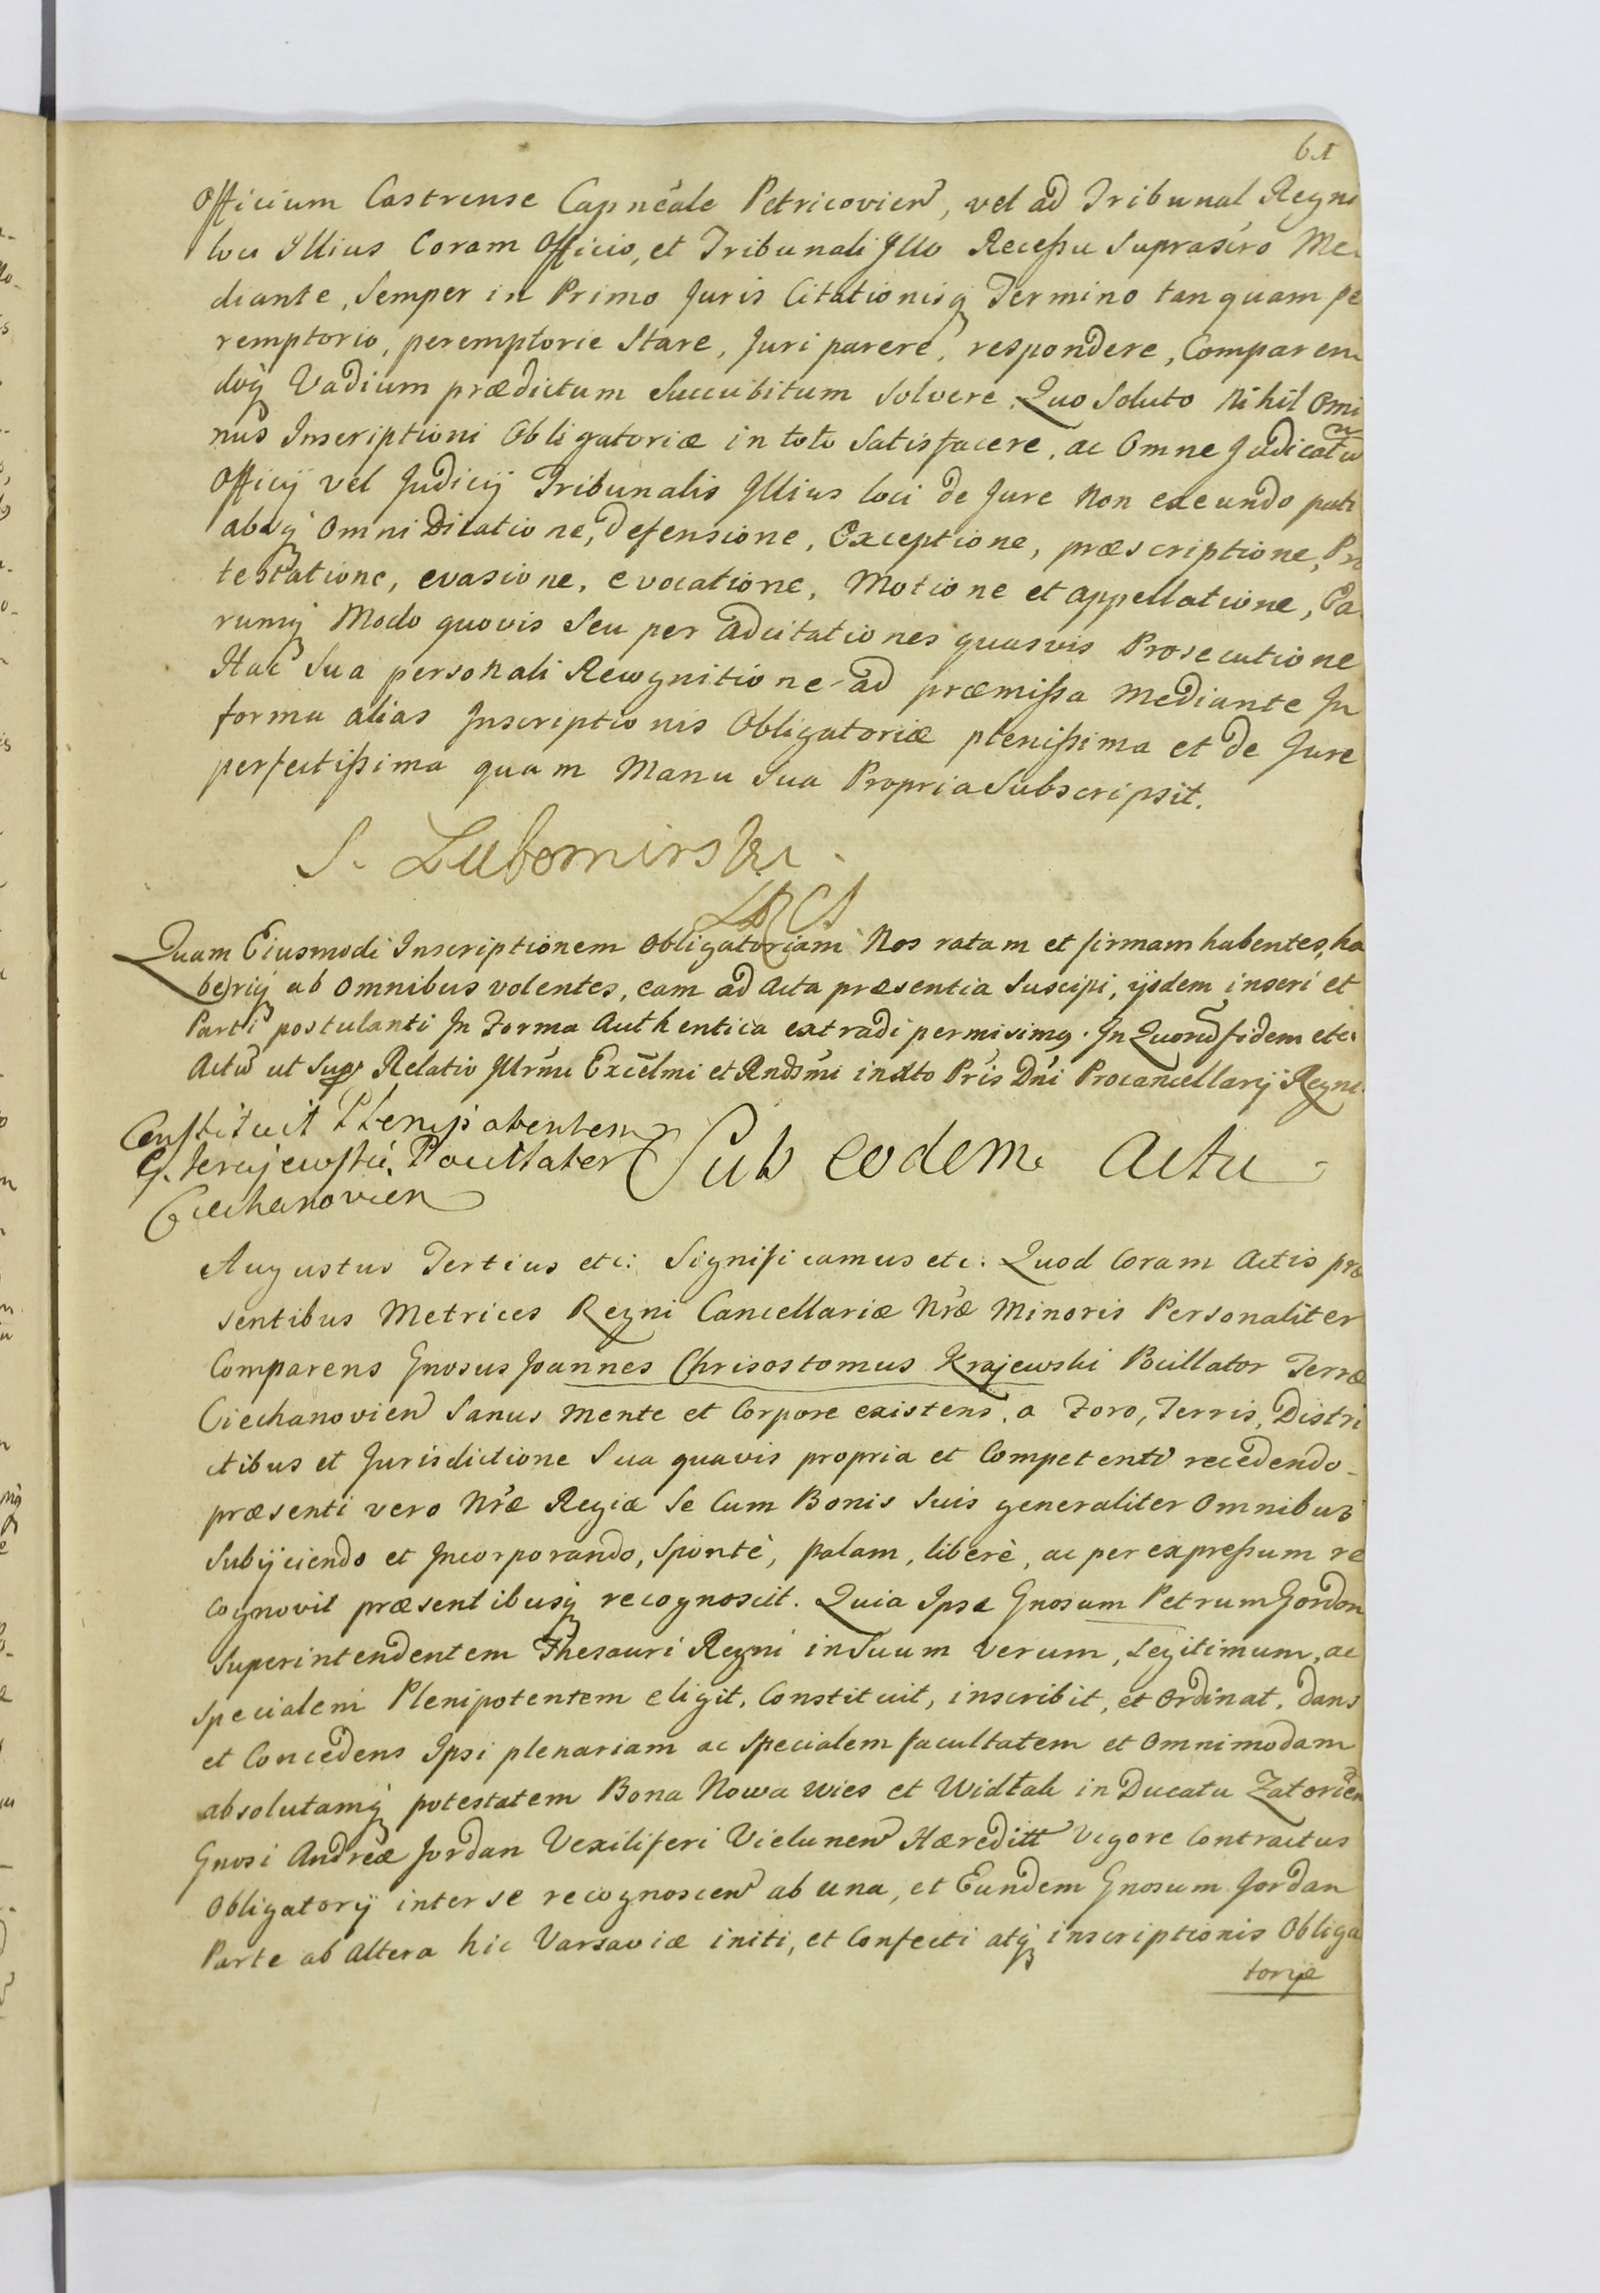 61
Officium Castrense Capnéale Petricovien, vel ad Tribunal Regni
loci Illius Coram Officio, et Tribunali Illo Recessu Suprascro Me-
diante, Semper in Primo Juris Citationisq Termino tanquam pe
remptorio, peremptorie Stare, Juri parere, respondere, Comparen
doq Vadium prædictum Succubitum Solvere. Quo Soluto Nihil Omi
nus Inscriptioni Obligatoriæ in toto Satisfacere, ac Omne Judicatu
Officij vel Judicij Tribunalis Illius loci de Jure Non exeundo pati
absq Omni Dilatione, defensione, Exceptione, præscriptione, Pro
testatione, evasione, evocatione, Motione et appellatione, Ea
rumq Modo quovis Seu per adcitationes quasvis Prosecutione
Hac Sua personali Recognitione ad præmissa Mediante In
forma alias Inscriptionis Obligatoriæ plenissima et de Jure
perfectissima quam Manu Sua Propria Subscripsit.
S. Lubomirski.
Quam Eiusmodi Inscriptionem Obligatoriam Nos ratam et firmam habentes, ha
beriq ab Omnibus volentes, eam ad Acta præsentia Suscipi, ijsdem inseri et
Parti postulanti In Forma Authentica extradi permisimq. In Quorū fidem etc:
Actū ut Sup Relatio Illrmi Excelmi et Rndsmi in Xto Pris Dni Procancellarij Regni.
Constituit Plenipotentem
G. Krajewski Pocillator
Ciechanovien
Sub eodem Actu
Augustus Tertius etc: Significamus etc: Quod Coram Actis præ
sentibus Metrices Regni Cancellariæ Nræ Minoris Personaliter
Comparens Gnosus Joannes Chrisostomus Krajewski Pocillator Terræ
Ciechanovien Sanus Mente et Corpore existens, a Foro, Terris, Distri
ctibus et Jurisdictione Sua quavis propria et Competenti recedendo
præsenti vero Nræ Regiæ Se Cum Bonis Suis generaliter Omnibus
Subijciendo et Incorporando, Spontè, palam, liberè, ac per expressum re
cognovit præsentibusq recognoscit. Quia Ipse Gnosum Petrum Gordon
Superintendentem Thesauri Regni in Suum Verum, Legitimum, ac
Specialem Plenipotentem eligit, Constituit, inscribit, et Ordinat, dans
et Concedens Ipsi plenariam ac Specialem facultatem et Omnimodam
absolutamq potestatem Bona Nowa wies et Widłali in Ducatu Zatorien
Gnosi Andreæ Jordan Vexiliferi Vielunen Hæreditt Vigore Contractus
Obligatorij inter se recognoscen ab una, et Eundem Gnosum Jordan
Parte ab Altera hic Varsaviæ initi, et Confecti atq inscriptionis Obliga
toriæ